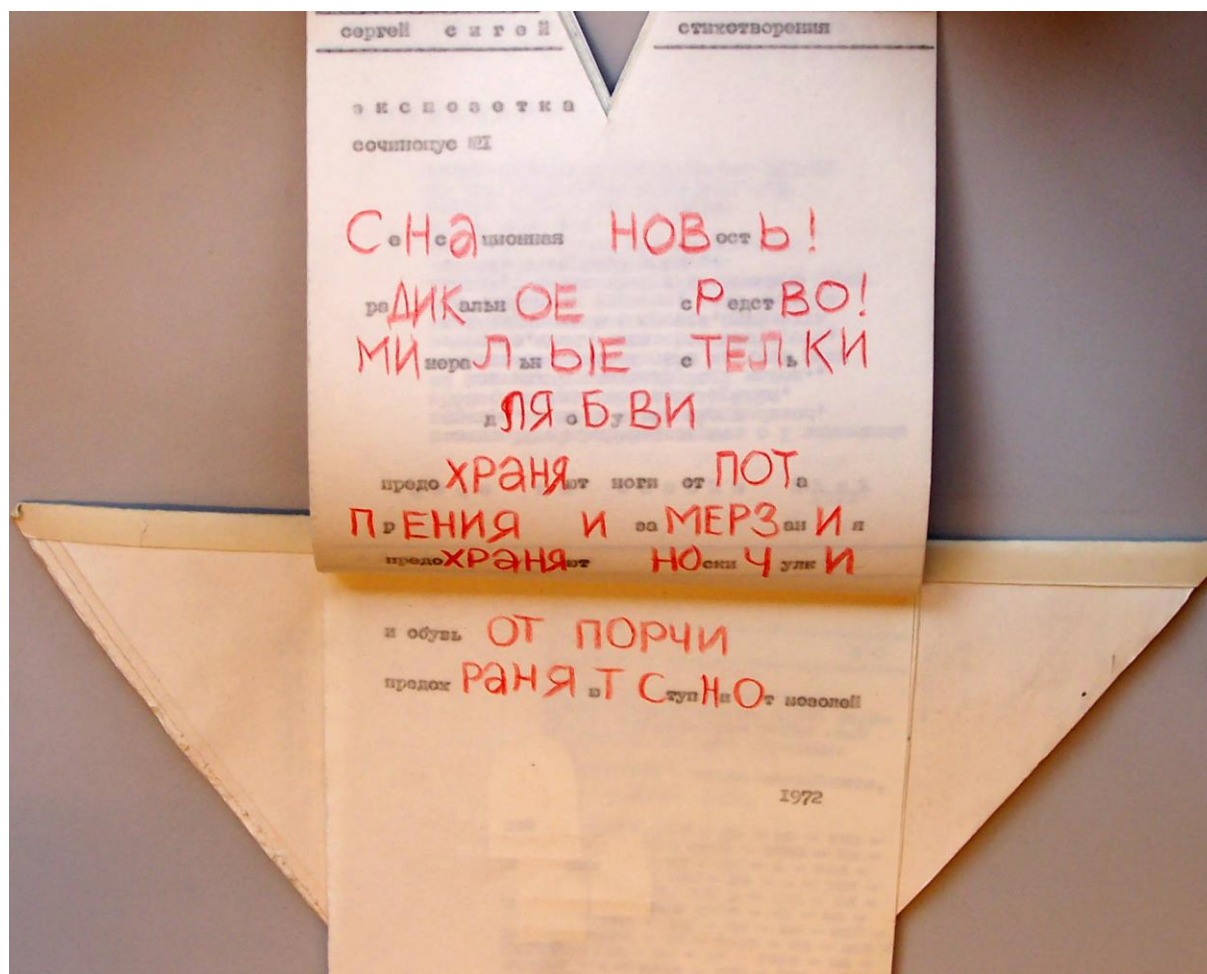 сергей сигей стихотворения
экспозетка
сочинопус №I
СеНсАционная НОВостЬ!
раДИКальнОЕ сРедстВО!
МИнераЛьнЫЕ сТЕЛьКИ
дЛЯ оБуВИ
предоХРАНЯют ноги от ПОТа
ПрЕНИЯ И заМЕРЗанИя
предоХРАНЯют НОски ЧулкИ
и обувь ОТ ПОРЧИ
предохРАНЯюТ СтупНиОт мозолей
1972